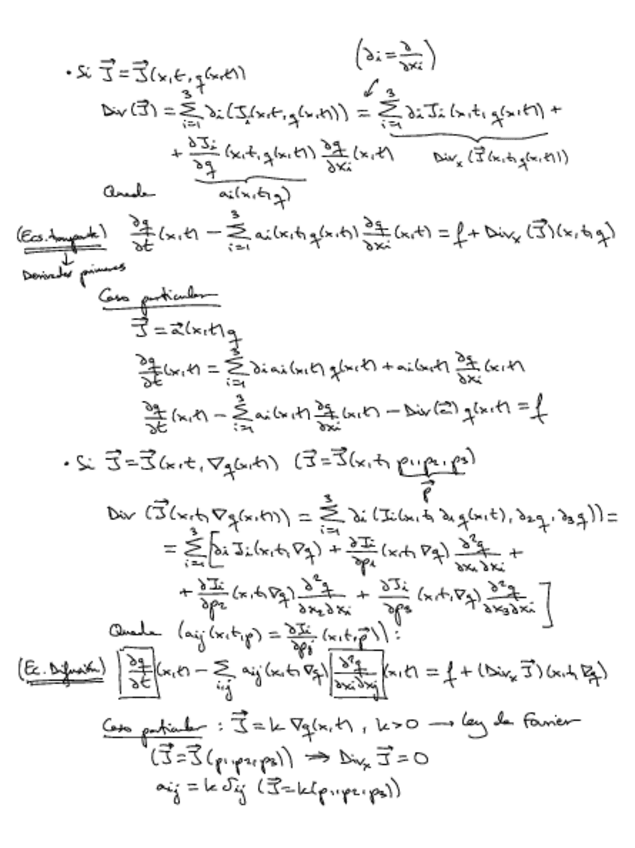 (∂i = ∂/∂xi)
• Si J⃗ = J⃗(x,t,q(x,t))
Div(J⃗) = Σ_{i=1}^{3} ∂i(Ji(x,t,q(x,t))) = Σ_{i=1}^{3} ∂iJi(x,t,q(x,t)) +
+ ∂Ji/∂q (x,t,q(x,t)) ∂q/∂xi (x,t) Div_x(J⃗(x,t,q(x,t)))
Queda ai(x,t,q)
(Ecs. transporte) ∂q/∂t (x,t) − Σ_{i=1}^{3} ai(x,t,q(x,t)) ∂q/∂xi (x,t) = f + Div_x(J⃗)(x,t,q)
↓
Derivadas primeras
Caso particular
J⃗ = a⃗(x,t)q
∂q/∂t (x,t) = Σ_{i=1}^{3} ∂iai(x,t) q(x,t) + ai(x,t) ∂q/∂xi (x,t)
∂q/∂t (x,t) − Σ_{i=1}^{3} ai(x,t) ∂q/∂xi (x,t) − Div(a⃗) q(x,t) = f
• Si J⃗ = J⃗(x,t,∇q(x,t)) (J⃗ = J⃗(x,t,p1,p2,p3)
p⃗
Div (J⃗(x,t,∇q(x,t))) = Σ_{i=1}^{3} ∂i(Ji(x,t,∂1q(x,t),∂2q,∂3q)) =
= Σ_{i=1}^{3} [∂iJi(x,t,∇q) + ∂Ji/∂p1 (x,t,∇q) ∂²q/∂x1∂xi +
+ ∂Ji/∂p2 (x,t,∇q) ∂²q/∂x2∂xi + ∂Ji/∂p3 (x,t,∇q) ∂²q/∂x3∂xi ]
Queda (aij(x,t,p) = ∂Ji/∂pj (x,t,p⃗)):
(Ec. Difusión) ∂q/∂t (x,t) − Σ_{i,j} aij(x,t,∇q) ∂²q/∂xi∂xj (x,t) = f + (Div_x J⃗)(x,t,∇q)
Caso particular : J⃗ = k ∇q(x,t), k>0 → Ley de Fourier
(J⃗ = J⃗(p1,p2,p3)) ⇒ Div_x J⃗ = 0
aij = k δij (J⃗ = k(p1,p2,p3))